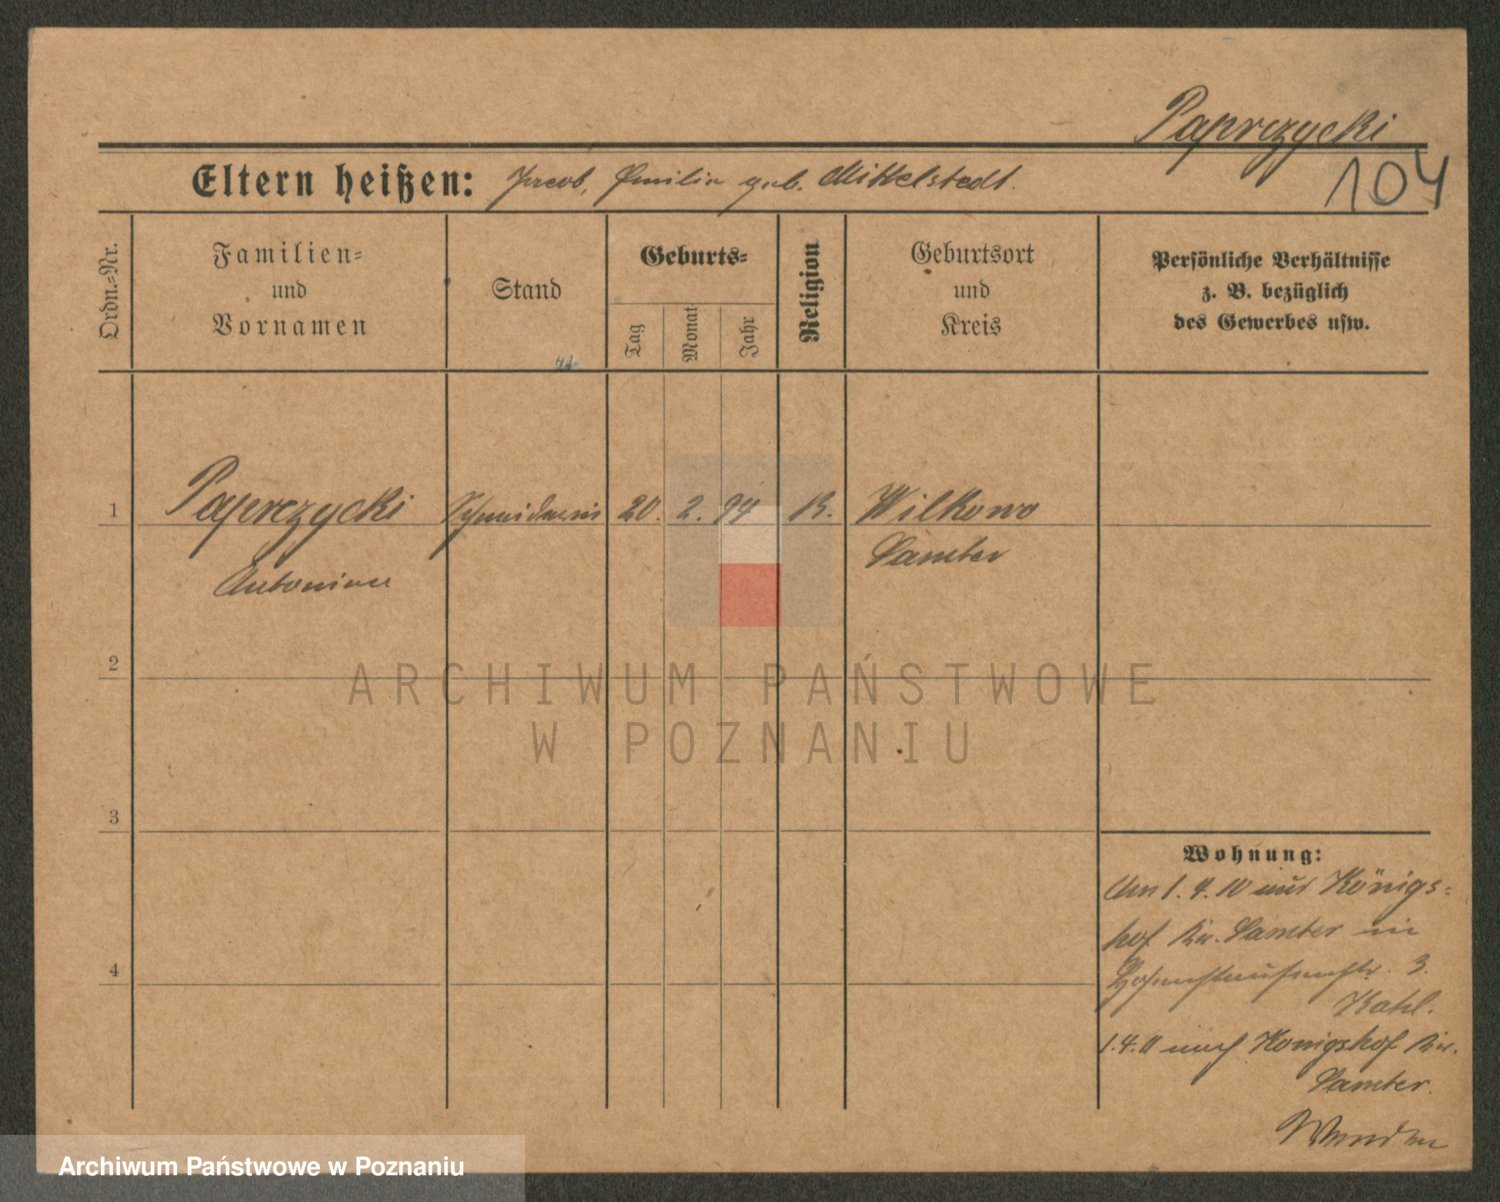 Paprzycki
104
Eltern heißen: Jacob, Emilia geb. Mittelstedt.
Ordn.-Nr.
Familien-
und
Vornamen
Stand
Geburts-
Tag
Monat
Jahr
Religion
Geburtsort
und
Kreis
Persönliche Verhältnisse
z. B. bezüglich
des Gewerbes usw.
1 Paprzycki Schneiderin 20. 2. 94 K. Wilkowo
Antonina Samter
2
ARCHIWUM PAŃSTWOWE
W POZNANIU
3
Wohnung:
Am 1.4.10 aus Königs-
hof Kr. Samter in
Hohenstaufenstr. 3.
4
1.4.11 nach Konigshof Kr.
Samter.
Wenden
Archiwum Państwowe w Poznaniu